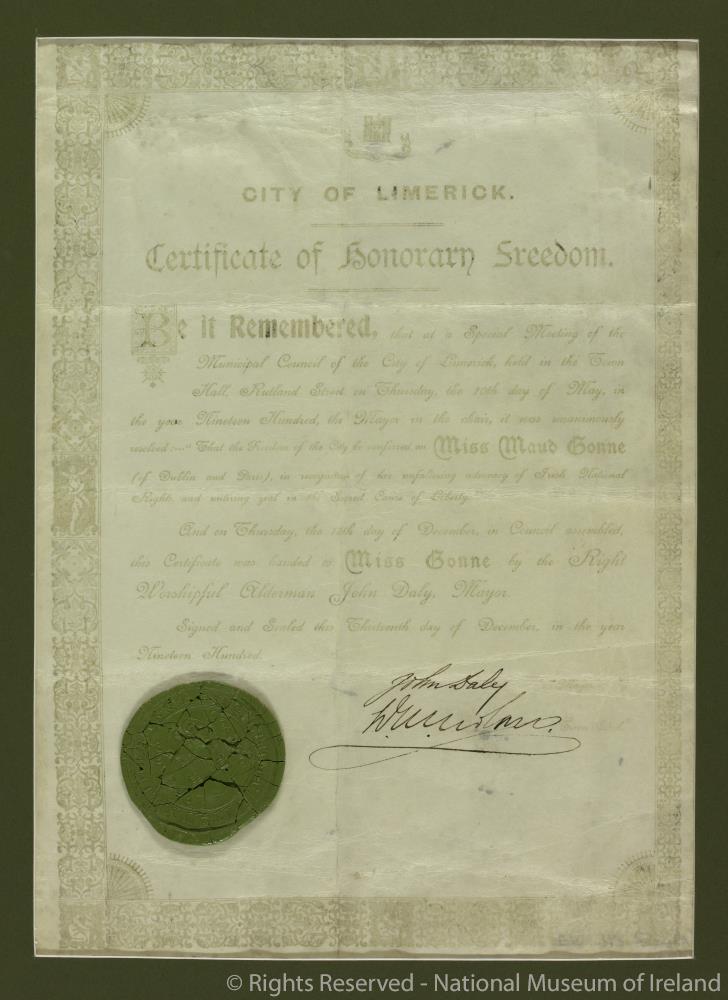 CITY OF LIMERICK.
Certificate of Honorary Freedom.
Be it Remembered, that at a Special Meeting of the
Municipal Council of the City of Limerick, held in the Town
Hall, Rutland Street on Thursday, the 10th day of May, in
the year Nineteen Hundred, the Mayor in the chair, it was unanimously
resolved:—"That the Freedom of the City be conferred on Miss Maud Gonne
(of Dublin and Paris), in recognition of her unfaltering advocacy of Irish National
Rights and untiring zeal in the Sacred Cause of Liberty."
And on Thursday, the 13th day of December, in Council assembled,
this Certificate was handed to Miss Gonne by the Right
Worshipful Alderman John Daly, Mayor.
Signed and Sealed this Thirteenth day of December, in the year
Nineteen Hundred.
John Daly
© Rights Reserved - National Museum of Ireland